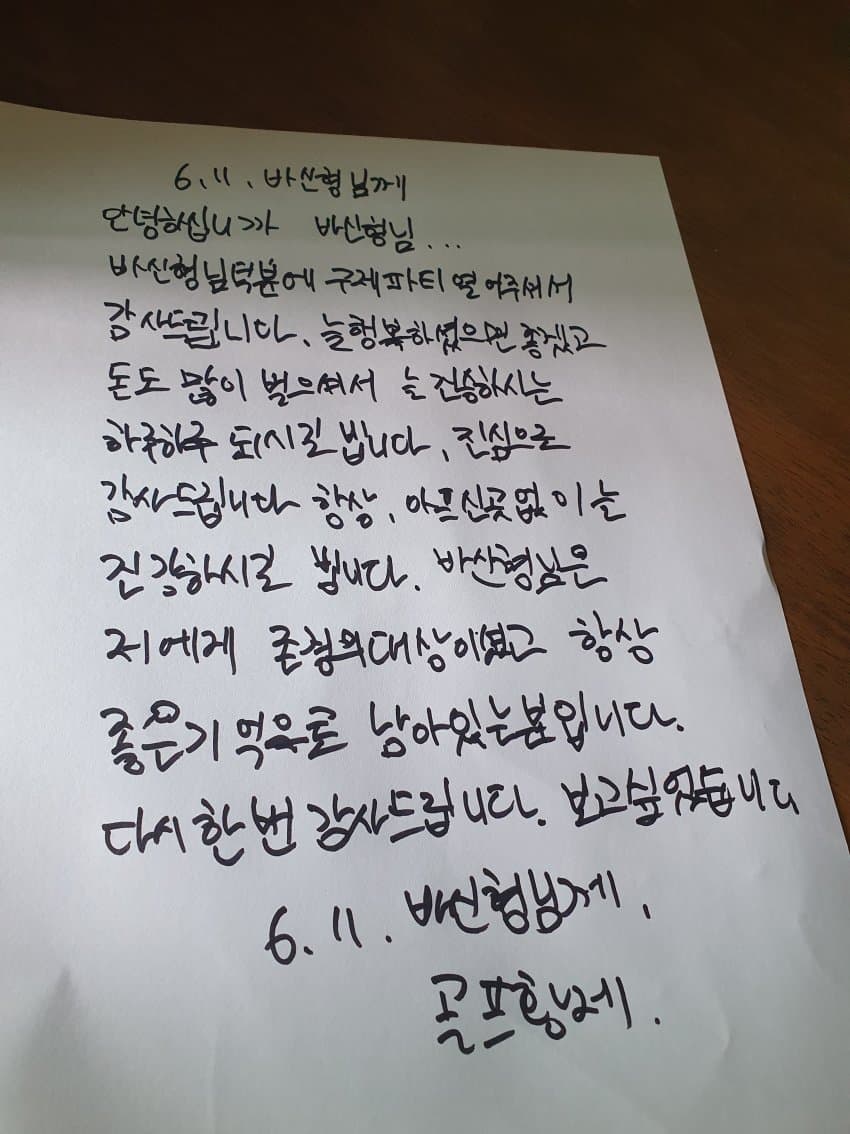 6.11. 바신형님께
안녕하십니까 바신형님...
바신형님덕분에 구제파티 열어주셔서
감사드립니다. 늘행복하셨으면 좋겠고
돈도 많이 벌으셔서 늘 건승하시는
하루하루 되시길 빕니다. 진심으로
감사드립니다 항상, 아프신곳없이 늘
건강하시길 빕니다. 바신형님은
저에게 존경의대상이셨고 항상
좋은기억으로 남아있는분입니다.
다시한번 감사드립니다. 보고싶었습니다
6.11. 바신형님께.
골프황제.